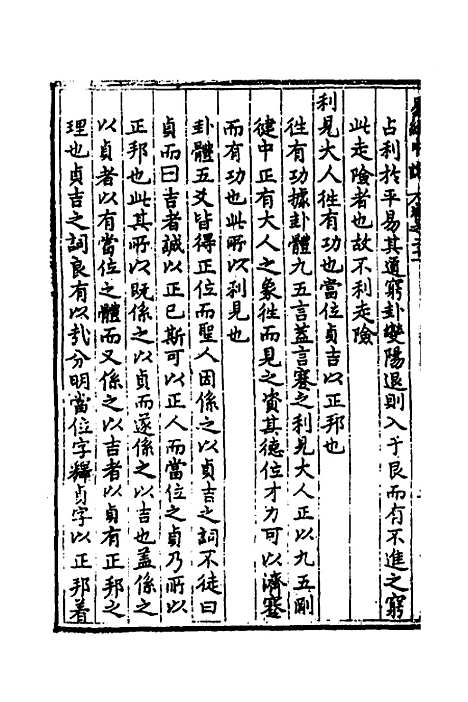 占利於平易其道窮卦變陽退則入于艮而有不進之窮
此走險者也故不利走險
利見大人往有功也當位貞吉以正邦也
往有功據卦體九五言蓋言蹇之利見大人正以九五剛
健中正有大人之象往而見之資其德位才力可以濟蹇
而有功也此所以利見也
卦體五爻皆得正位而聖人因係之以貞吉之詞不徒曰
貞而曰吉者誠以正已斯可以正人而當位之貞乃所以
正邦也此其所以既係之以貞而遂係之以吉也蓋係之
以貞者以有當位之體而又係之以吉者以貞有正邦之
理也貞吉之詞良有以哉分明當位字釋貞字以正邦着